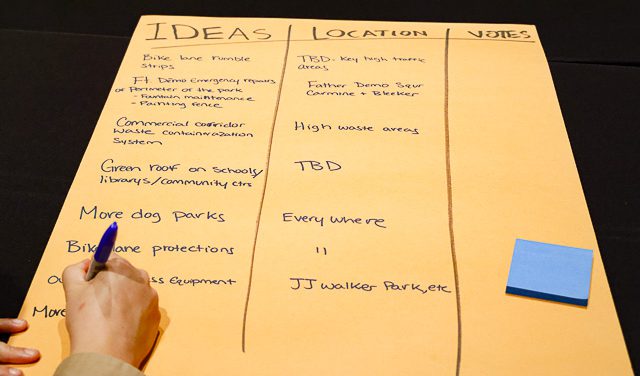 IDEAS LOCATION VOTES
Bike lane rumble
strips
TBD - Key high traffic
areas
Ft. Demo Emergency repairs
of Perimeter of the park
- Fountain maintenance
- Painting fence
Father Demo Squr
Carmine + Bleeker
Commercial corridor
waste containerazation
system
High waste areas
Green roof on schools/
librarys/community ctrs
TBD
More dog parks
Everywhere
Bike lane protections
"
Equipment
JJ Walker Park, etc
More